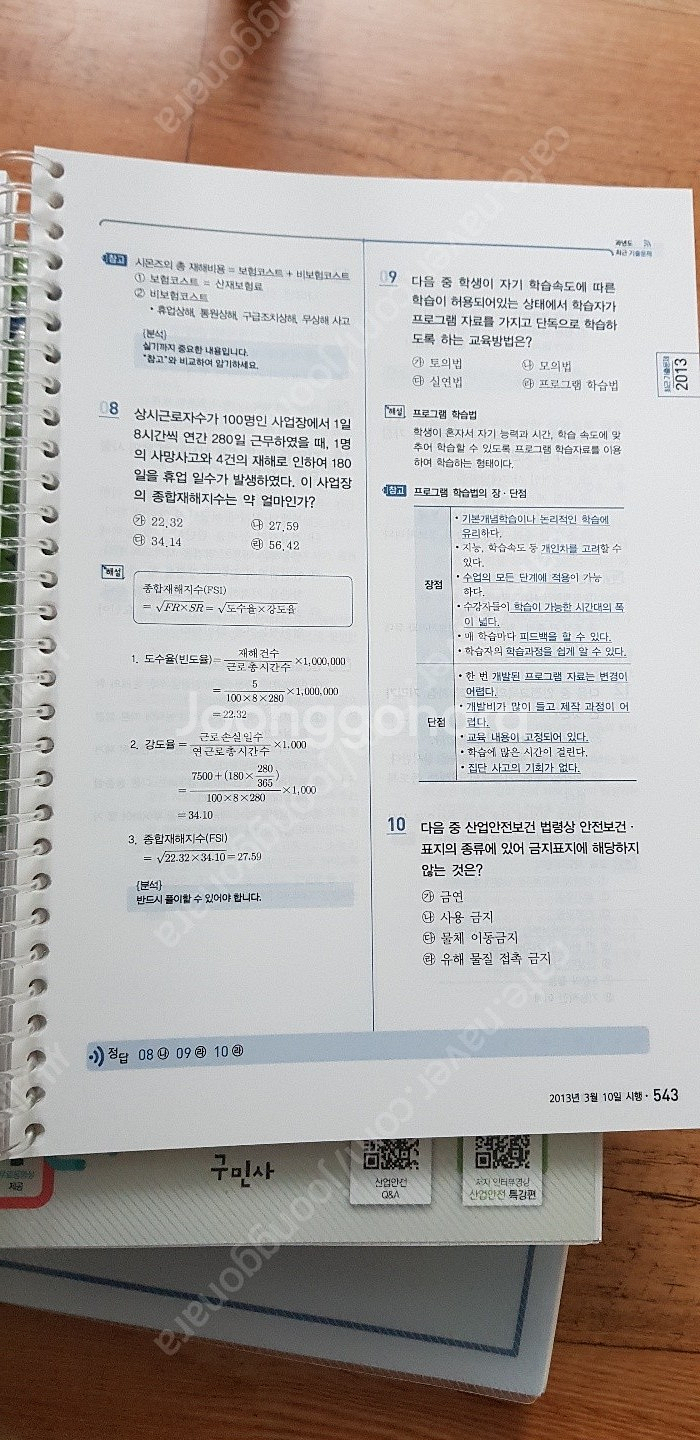 과년도
최근 기출문제
참고 시몬즈의 총 재해비용 = 보험코스트 + 비보험코스트
① 보험코스트 = 산재보험료
② 비보험코스트
• 휴업상해, 통원상해, 구급조치상해, 무상해 사고
{분석}
실기까지 중요한 내용입니다.
"참고"와 비교하여 암기하세요.
08 상시근로자수가 100명인 사업장에서 1일
8시간씩 연간 280일 근무하였을 때, 1명
의 사망사고와 4건의 재해로 인하여 180
일을 휴업 일수가 발생하였다. 이 사업장
의 종합재해지수는 약 얼마인가?
㉮ 22.32 ㉯ 27.59
㉰ 34.14 ㉱ 56.42
해설
종합재해지수(FSI)
= √FR×SR = √도수율×강도율
1. 도수율(빈도율) = 재해건수/근로총시간수 ×1,000,000
= 5/100×8×280 ×1,000,000
= 22.32
2. 강도율 = 근로손실일수/연근로총시간수 ×1,000
= 7500+(180×280/365)/100×8×280 ×1,000
= 34.10
3. 종합재해지수(FSI)
= √22.32×34.10 = 27.59
{분석}
반드시 풀이할 수 있어야 합니다.
09 다음 중 학생이 자기 학습속도에 따른
학습이 허용되어있는 상태에서 학습자가
프로그램 자료를 가지고 단독으로 학습하
도록 하는 교육방법은?
㉮ 토의법 ㉯ 모의법
㉰ 실연법 ㉱ 프로그램 학습법
해설 프로그램 학습법
학생이 혼자서 자기 능력과 시간, 학습 속도에 맞
추어 학습할 수 있도록 프로그램 학습자료를 이용
하여 학습하는 형태이다.
참고 프로그램 학습법의 장·단점
장점
• 기본개념학습이나 논리적인 학습에
유리하다.
• 지능, 학습속도 등 개인차를 고려할 수
있다.
• 수업의 모든 단계에 적용이 가능
하다.
• 수강자들이 학습이 가능한 시간대의 폭
이 넓다.
• 매 학습마다 피드백을 할 수 있다.
• 학습자의 학습과정을 쉽게 알 수 있다.
단점
• 한 번 개발된 프로그램 자료는 변경이
어렵다.
• 개발비가 많이 들고 제작 과정이 어
렵다.
• 교육 내용이 고정되어 있다.
• 학습에 많은 시간이 걸린다.
• 집단 사고의 기회가 없다.
10 다음 중 산업안전보건 법령상 안전보건·
표지의 종류에 있어 금지표지에 해당하지
않는 것은?
㉮ 금연
㉯ 사용 금지
㉰ 물체 이동금지
㉱ 유해 물질 접촉 금지
최근 기출문제
2013
정답 08 ㉯ 09 ㉱ 10 ㉱
2013년 3월 10일 시행 · 543
제공
구민사
산업안전
Q&A
저자 인터뷰영상
산업안전 특강편
Joonggonara
cafe.naver.com/joonggonara